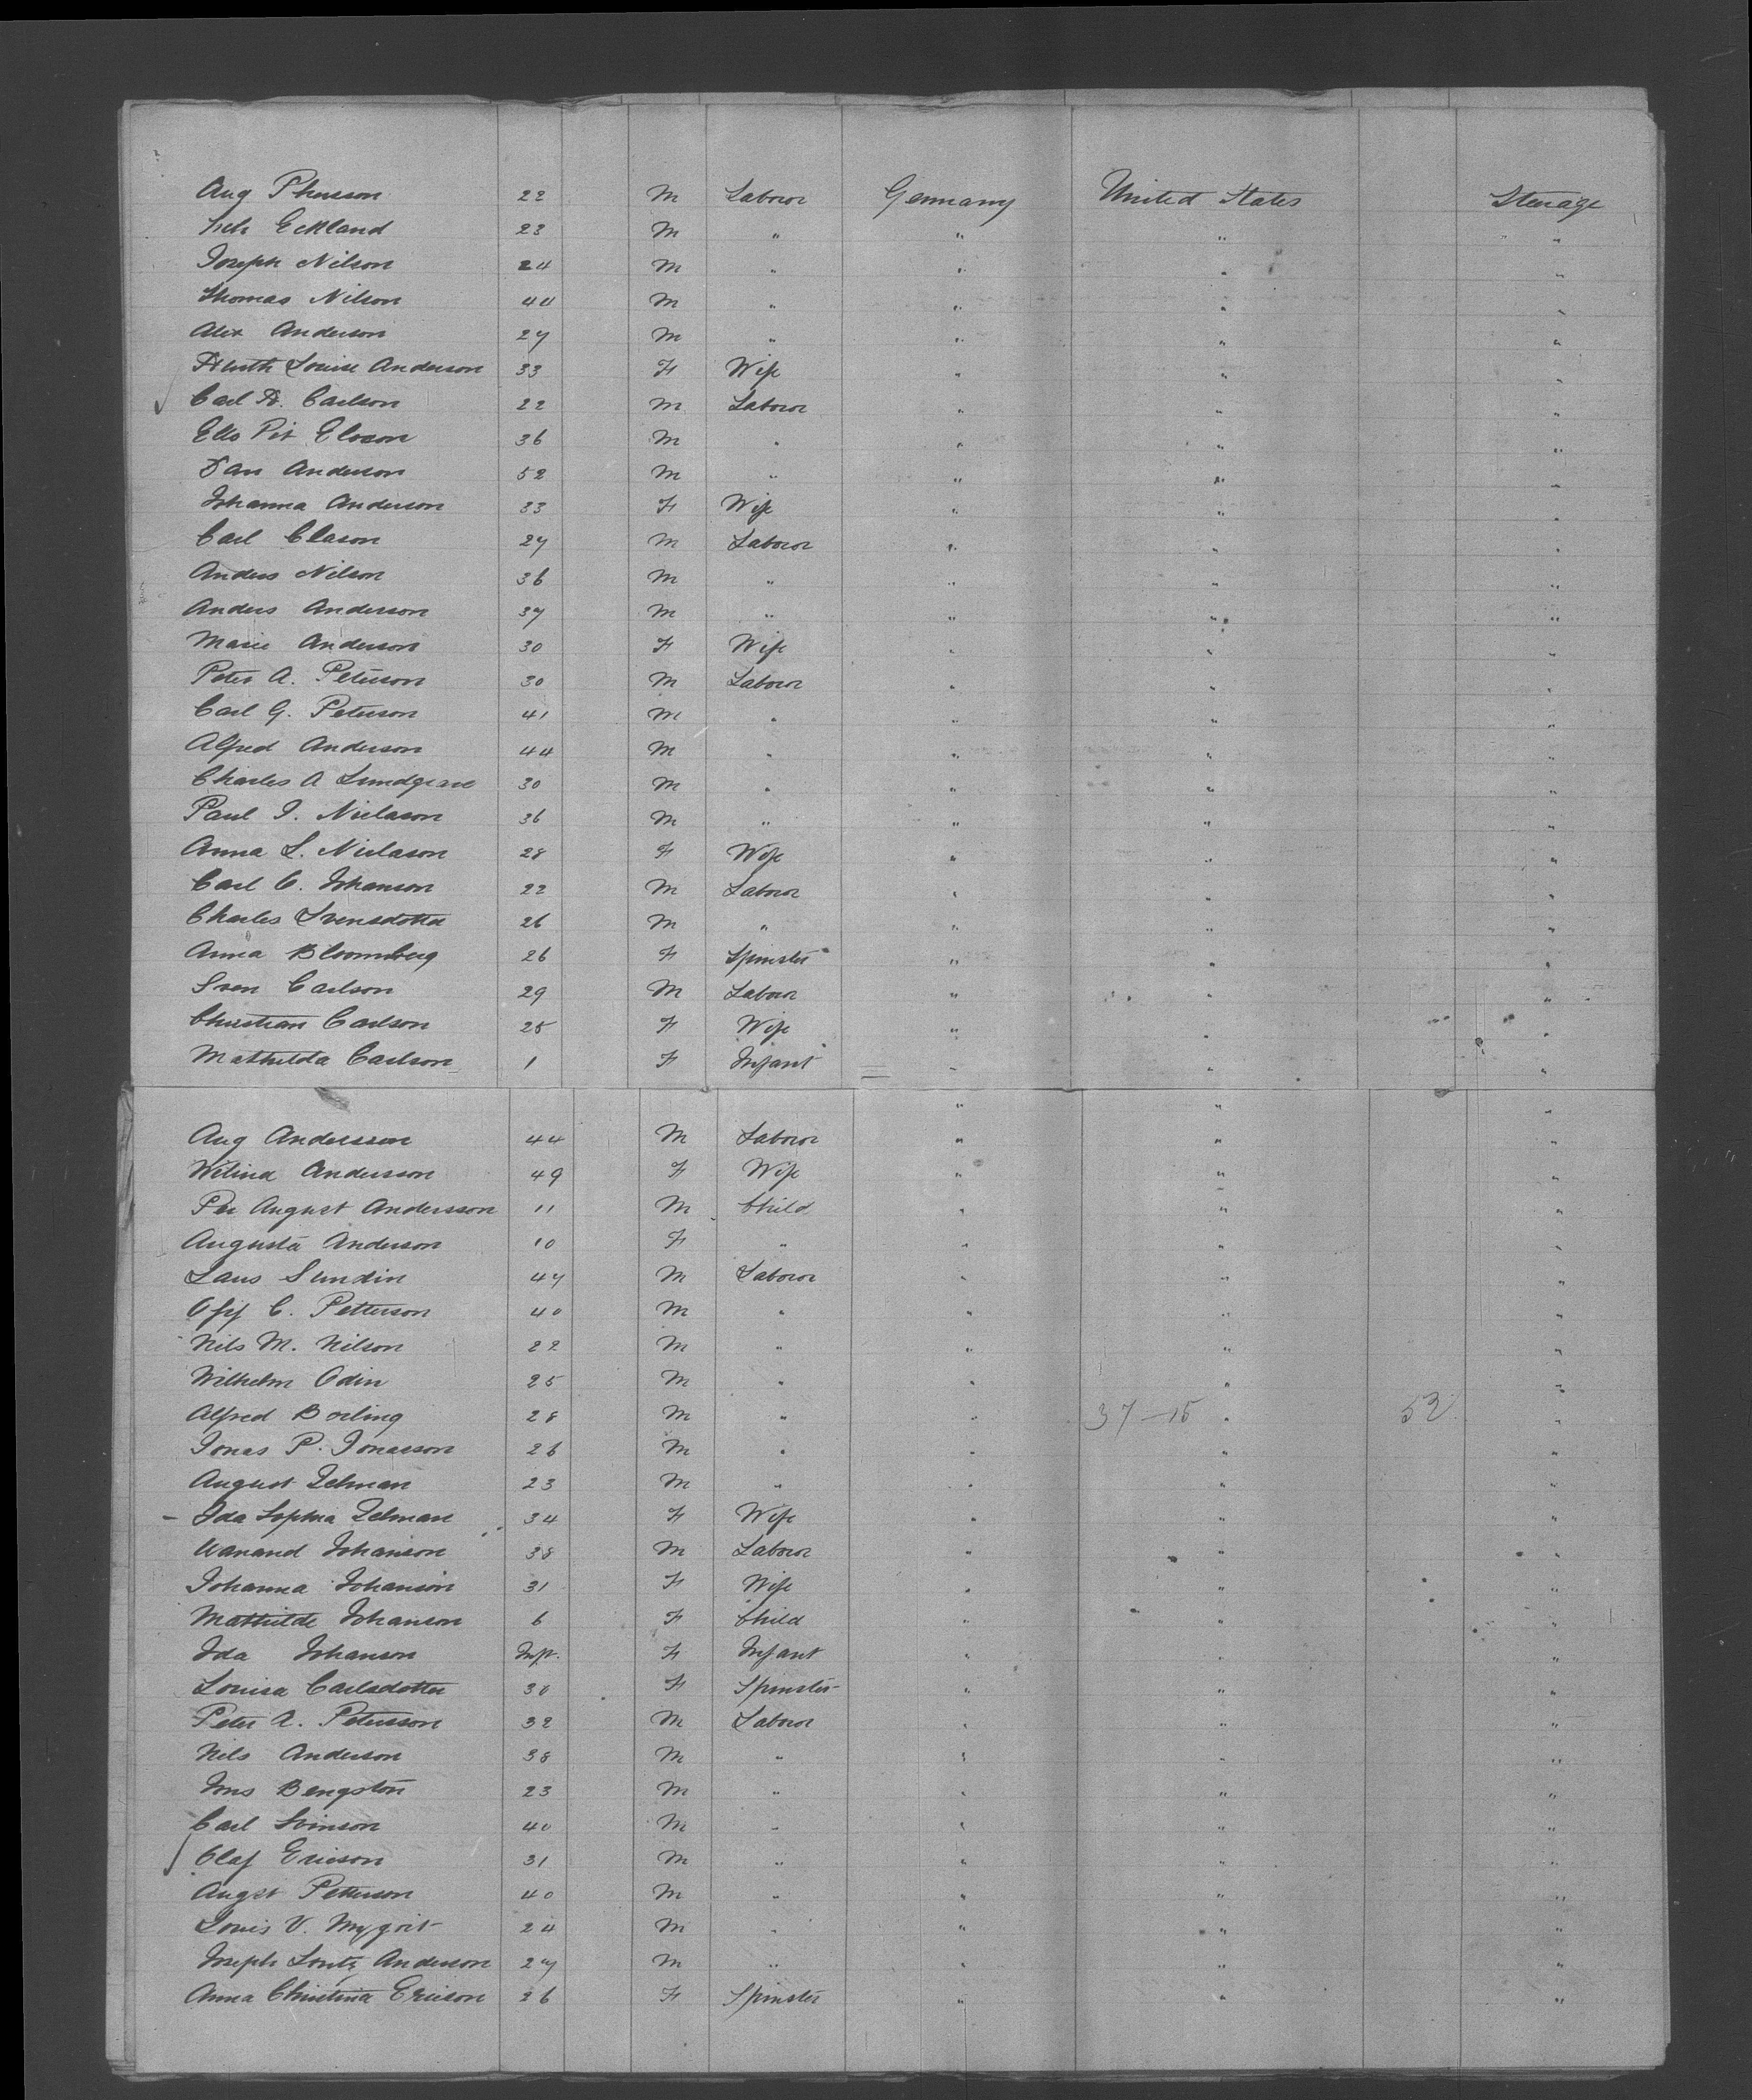 Aug 22 M Laborer Germany United States Steerage
Eckland 23 M " " " "
Joseph Nilson 24 M " " " "
Thomas Nilson 44 M " " " "
Alex Anderson 27 M " " " "
Louise Anderson 33 F Wife " " "
Carl A. Carlson 22 M Laborer " " "
Pit 36 M " " " "
Dan Anderson 52 M " " " "
Johanna Anderson 33 F Wife " " "
Carl Clason 27 M Laborer " " "
Anders Nilson 36 M " " " "
Anders Anderson 37 M " " " "
Marie Anderson 30 F Wife " " "
Peter A. Peterson 30 M Laborer " " "
Carl G. Peterson 41 M " " " "
Alfred Anderson 44 M " " " "
Charles A Lundgren 30 M " " " "
Paul J. Nielason 36 M " " " "
Anna L. Nielason 28 F Wife " " "
Carl C. Johanson 22 M Laborer " " "
Charles Svensdotter 26 M " " " "
Anna Bloomberg 26 F Spinster " " "
Sven Carlson 29 M Laborer " " "
Christian Carlson 25 F Wife " " "
Mathilda Carlson 1 F Infant " " "
" " "
Aug Andersson 44 M Laborer " " "
Anderson 49 F Wife " " "
Per August Andersson 11 M Child " " "
Augusta Anderson 10 F " " " "
Laus Sundin 47 M Laborer " " "
C. Petterson 40 M " " " "
Nils M. Nilson 22 M " " " "
Wilhelm Odin 25 M " " " "
Alfred Borling 28 M " " 37-15 " 52 "
Jonas P. Jonasson 26 M " " " "
August Zelman 23 M " " " "
- Ida Sophia Zelman 34 F Wife " " "
Johanson 38 M Laborer " " "
Johanna Johanson 31 F Wife " " "
Mathilde Johanson 6 F Child " " "
Ida Johanson Inft. F Infant " " "
Louisa Carlsdotter 30 F Spinster " " "
Peter A. Petersson 32 M Laborer " " "
Nels Anderson 38 M " " " "
Bengston 23 M " " " "
Carl Svinson 40 M " " " "
Olaf Ericson 31 M " " " "
Augst Petterson 40 M " " " "
Louis V. 24 M " " " "
Joseph Anderson 27 M " " " "
Anna Christina Ericson 26 F Spinster " " "